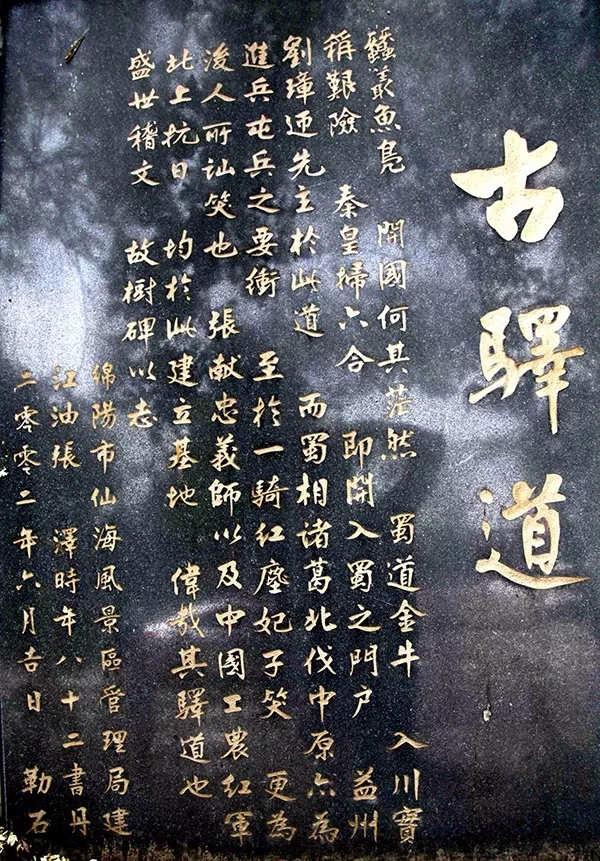 古驛道
蠶叢魚鳧 開國何其茫然 蜀道金牛 入川實
稱艱險 秦皇掃六合 即開入蜀之門户 益州
劉璋迎先主於此道 而蜀相诸葛北伐中原亦為
進兵屯兵之要衝 至於一騎紅塵妃子笑 更為
後人所訕笑也 張献忠義師以及中國工農紅軍
北上抗日 均於此建立基地 偉哉其驛道也
盛世稽文 故樹碑以志
綿陽市仙海風景區管理局建
江油張 澤時年八十二書丹
二零零二年六月吉日 勒石